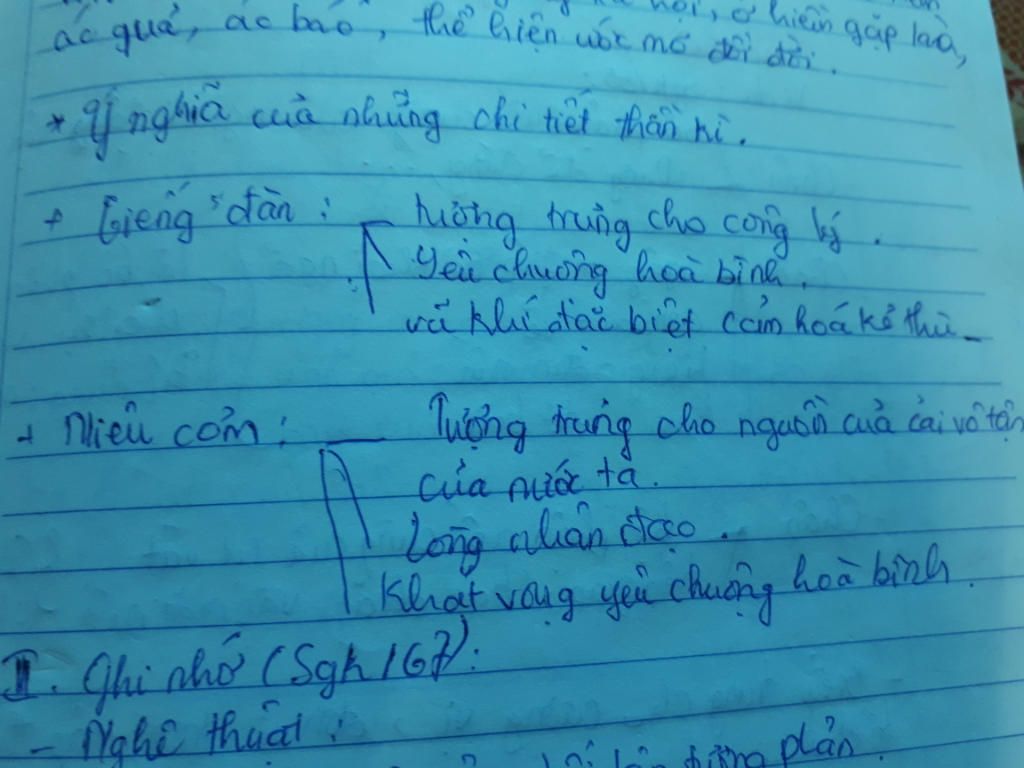 hội, ở hiền gặp lành,
ác quả, ác báo, thể hiện ước mơ đổi đời.
* Ý nghĩa của những chi tiết thần kì.
+ Tiếng đàn : - tượng trưng cho công lý.
Yêu chuộng hoà bình.
vũ khí đặc biệt cảm hoá kẻ thù
+ Niêu cơm : - Tượng trưng cho nguồn của cải vô tận
của nước ta.
Lòng nhân đạo.
Khát vọng yêu chuộng hoà bình.
II. Ghi nhớ (Sgk / 67) :
- Nghệ thuật :
phản